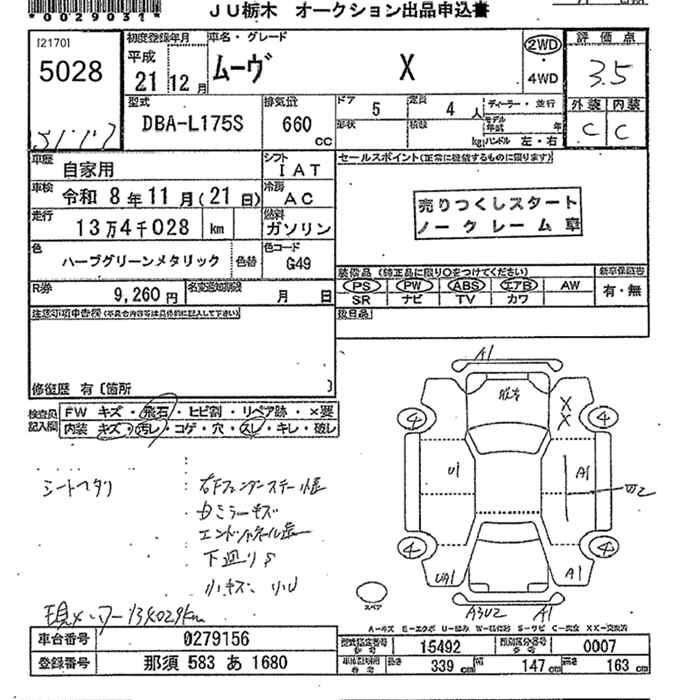 *0029031*
JU栃木 オークション出品申込書
[2170]
5028
初度登録年月
平成
21 12 月
車名・グレード
ムーヴ X
2WD
・
4WD
評価点
3.5
外装 内装
C C
型式
DBA-L175S
排気量
660 cc
ドア 5
定員 4 人
ディーラー・並行
モデル年式 年
形状
積載 kg
ハンドル 左・右
車歴 自家用
シフト IAT
車検 令和 8年 11月 (21日)
冷房 AC
走行 13万4千028 km
燃料 ガソリン
色 ハーブグリーンメタリック 色替
色コード G49
R券 9,260円
名変期限 月 日
セールスポイント(正常に機能するものに限ります)
売りつくしスタート
ノークレーム車
装備品 (純正品に限り○をつけてください)
新車保証書
PS PW ABS エアB AW
有・無
SR ナビ TV カワ
後日品
注意事項申告欄
修復歴 有 (箇所 )
検査員記入欄
FW キズ・飛石・ヒビ割・リペア跡・×要
内装 キズ・汚レ・コゲ・穴・スレ・キレ・破レ
A1
X
X
4 4
U1
A1
W2
4 4
UA1
A1
スペア
A3U2 A1
シートヘタリ
・右Fフェンダーステー曲
・下廻りS
・小キズ 小U
現メーター134029km
A-キズ E-エクボ U-凹み W-補修跡 S-サビ C-腐食 XX-交換済
車台番号 0279156
登録番号 那須 583 あ 1680
型式指定番号 15492
類別区分番号 0007
長さ 339 cm
幅 147 cm
高さ 163 cm